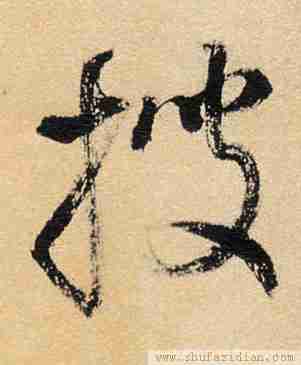 搜
www.shufazidian.com